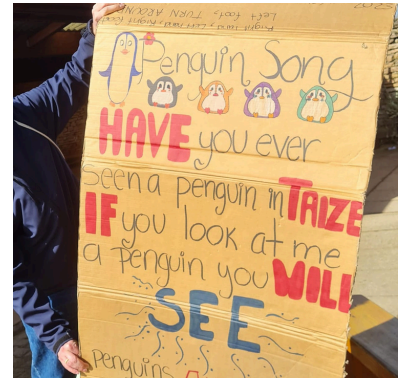 Left foot, TURN AROUND
Penguin Song
HAVE you ever
seen a penguin in TAIZE
IF you look at me
a Penguin you WILL
SEE
Penguins